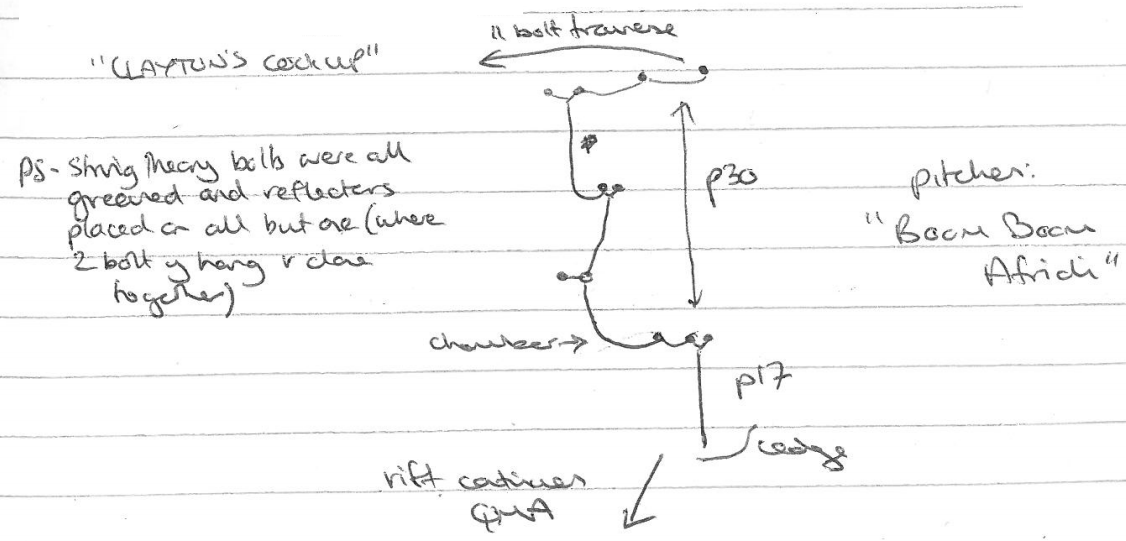 11 bolt traverse
"CLAYTON'S cockup"
PS- String Theory bolts were all
greased and reflectors
placed on all but one (where
2 bolt y hang v close
together)
p30
pitches:
"Boom Boom
Afridi"
chamber →
p17
ledge
rift continues
QMA